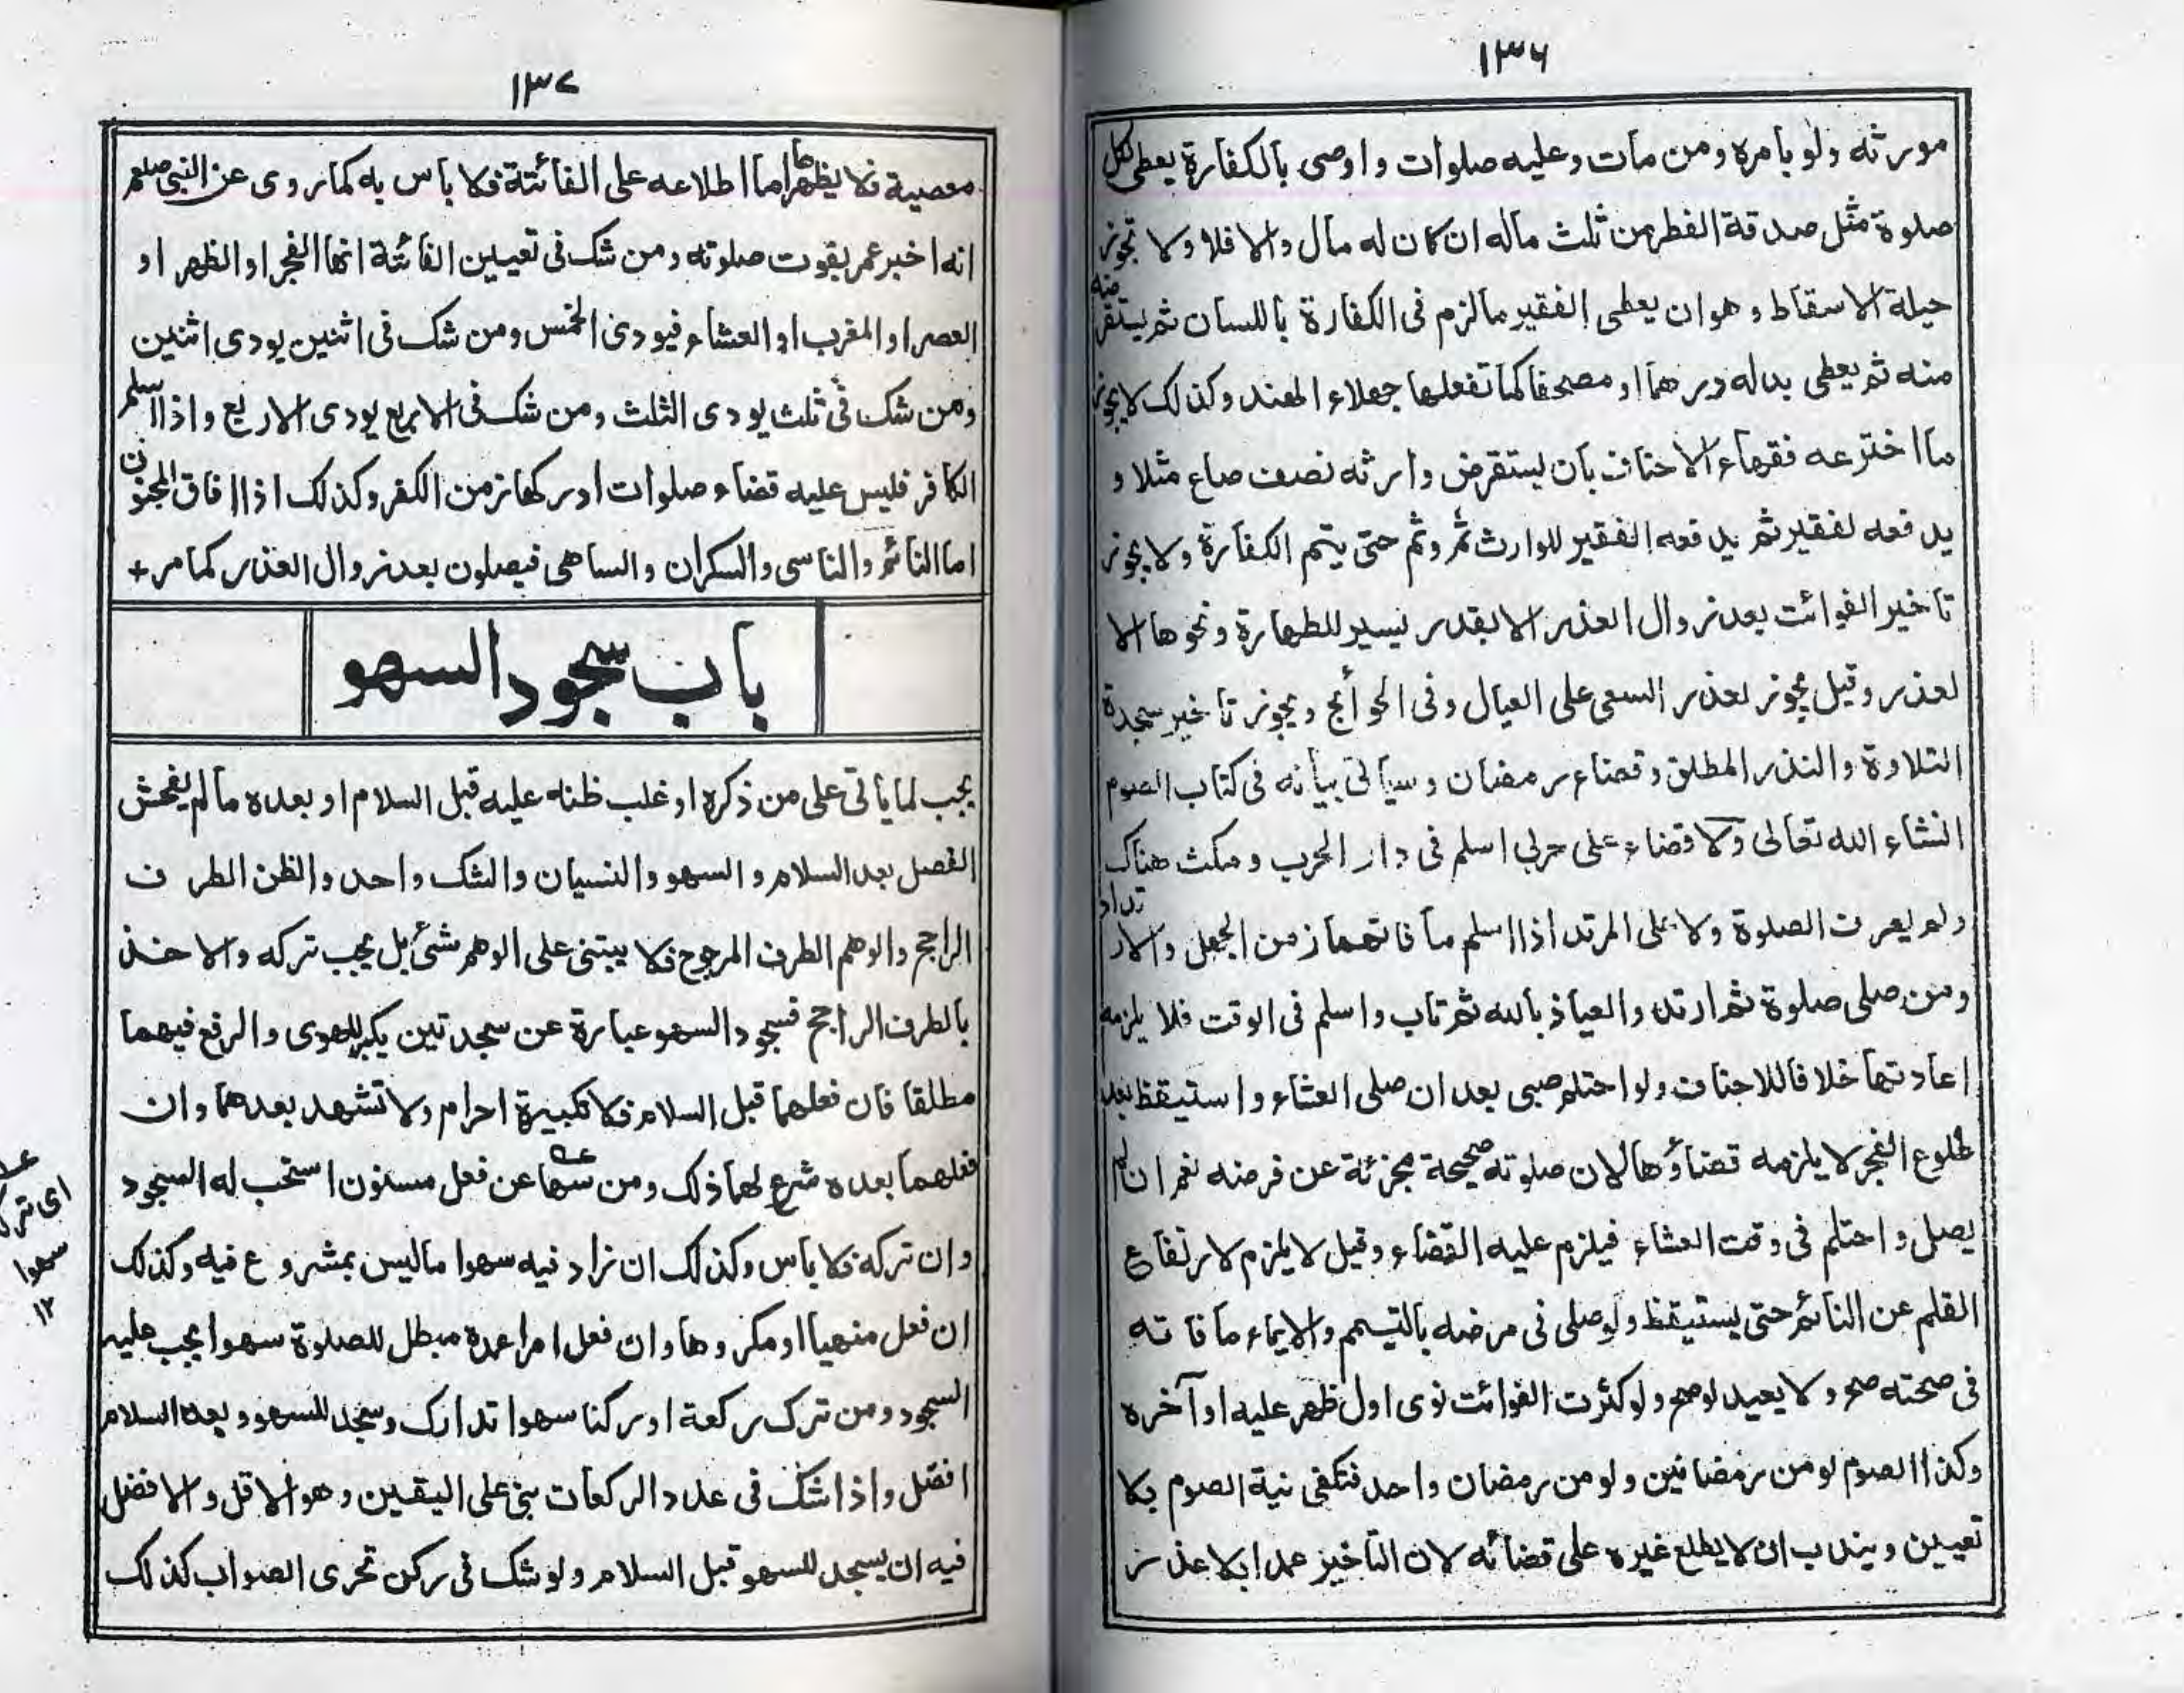 ١٣٦
مورثه ولو بامره ومن مات وعليه صلوات واوصى بالكفارة يعطى لكل
صلوة مثل صدقة الفطر من ثلث ماله ان كان له مال والا فلا ولا تجوز
حيلة الاسقاط وهو ان يعطى الفقير مالزم فى الكفارة باللسان ثم يستقرض
منه ثم يعطى بدله درهما او مصحفا كما تفعلها جهلاء الهند وكذلك لا يجوز
ما اخترعه فقهاء الاحناف بان يستقرض وارثه نصف صاع مثلا و
يدفعه لفقير ثم يدفعه الفقير للوارث ثم وثم حتى يتم الكفارة ولا يجوز
تاخير الفوائت بعد زوال العذر الا بقدر يسير للطهارة ونحوها الا
لعذر وقيل يجوز لعذر السعى على العيال وفى الحوائج ويجوز تاخير سجدة
التلاوة والنذر المطلق وقضاء رمضان وسياتى بيانه فى كتاب الصوم
انشاء الله تعالى ولا قضاء على حربى اسلم فى دار الحرب ومكث هناك
ولم يعرف الصلوة ولا على المرتد اذا اسلم ما فاتهما زمن الجهل والارتداد
ومن صلى صلوة ثم ارتد والعياذ بالله ثم تاب واسلم فى الوقت فلا يلزمه
اعادتها خلافا للاحناف ولو احتلم صبى بعد ان صلى العشاء واستيقظ بعد
طلوع الفجر لا يلزمه قضاؤها لان صلوته صحيحة مجزئة عن فرضه نعم ان لم
يصل واحتلم فى وقت العشاء فيلزم عليه القضاء وقيل لا يلزم لارتفاع
القلم عن النائم حتى يستيقظ ولو صلى فى مرضه بالتيمم والايماء ما فاته
فى صحته صح ولا يعيد لو صح ولو كثرت الفوائت نوى اول ظهر عليه او آخره
وكذا الصوم لو من رمضانين ولو من رمضان واحد فتكفى نية الصوم بلا
تعيين ويندب ان لا يطلع غيره على قضائه لان التاخيز عمدا بلا عذر
١٣٧
معصية فلا يظهرها اما اطلاعه على الفائتة فلا باس به كما روى عن النبى صلعم
انه اخبر عمر بفوت صلوته ومن شك فى تعيين الفائتة انها الفجر او الظهر او
العصر او المغرب او العشاء فيودى الخمس ومن شك فى اثنين يودى اثنين
ومن شك فى ثلث يودى الثلث ومن شك فى الاربع يودى الاربع واذا اسلم
الكافر فليس عليه قضاء صلوات ادركها زمن الكفر وكذلك اذا افاق المجنون
اما النائم والناسى والسكران والساهى فيصلون بعد زوال العذر كما مر +
باب سجود السهو
يجب لما ياتى على من ذكره او غلب ظنه عليه قبل السلام او بعده مالم يفحش
الفصل بعد السلام والسهو والنسيان والشك واحد والظن الطرف
الراجح والوهم الطرف المرجوح فلا يبتنى على الوهم شئ بل يجب تركه والاخذ
بالطرف الراجح فسجود السهو عبارة عن سجدتين يكبر للهوى والرفع فيهما
مطلقا فان فعلهما قبل السلام فلا تكبيرة احرام ولا تشهد بعدهما وان
فعلهما بعده شرع لهما ذلك ومن سها عن فعل مسنون استحب له السجود
وان تركه فلا باس وكذلك ان زاد فيه سهوا ماليس بمشروع فيه وكذلك
ان فعل منهيا او مكروها وان فعل امرا عمده مبطل للصلوة سهوا يجب عليه
السجود ومن ترك ركعة او ركنا سهوا تدارك وسجد للسهو وبعد السلام
افضل واذا شك فى عدد الركعات بنى على اليقين وهو الاقل والافضل
فيه ان يسجد للسهو قبل السلام ولو شك فى ركن تحرى الصواب كذلك
اى ترك
سهوا
١٢